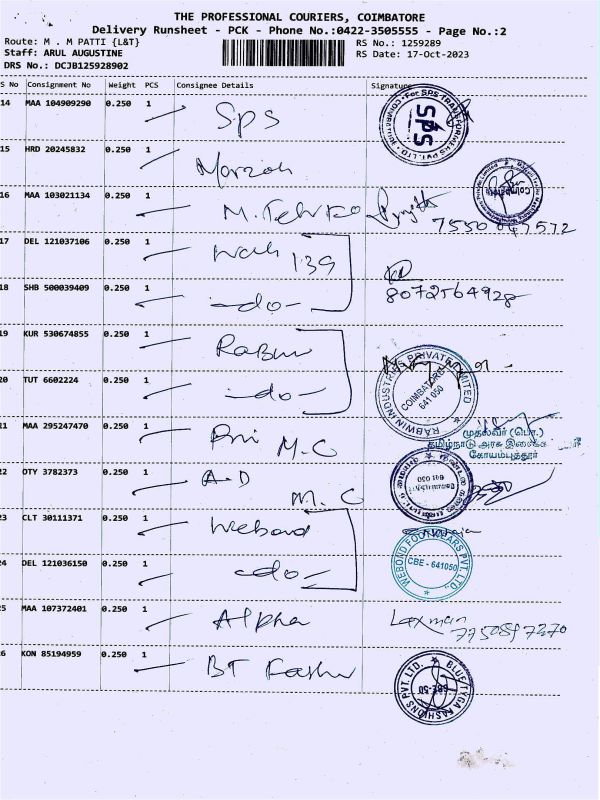 THE PROFESSIONAL COURIERS, COIMBATORE
Delivery Runsheet - PCK - Phone No.:0422-3505555 - Page No.:2
Route: M . M PATTI {L&T}
RS No.: 1259289
Staff: ARUL AUGUSTINE
RS Date: 17-Oct-2023
DRS No.: DCJB125928902
S No Consignment No Weight PCS Consignee Details Signature
14 MAA 104909290 0.250 1 SPS
For SPS TRANSFORMERS PVT. LTD. COIMBATORE
SPS
15 HRD 20245832 0.250 1
16 MAA 103021134 0.250 1
Coimbatore
17 DEL 121037106 0.250 1 139
18 SHB 500039409 0.250 1 -do-
8072564928
19 KUR 530674855 0.250 1
20 TUT 6602224 0.250 1 -do-
RABWIN INDUSTRIES PRIVATE LIMITED
COIMBATORE
641 050
21 MAA 295247470 0.250 1 M.C
முதல்வர் (பொ.)
தமிழ்நாடு அரசு இசைக்
கோயம்புத்தூர்
22 OTY 3782373 0.250 1 A.D
M.C
641 050
23 CLT 30111371 0.250 1 Webond
24 DEL 121036150 0.250 1 -do-
WEBOND FOUNDARS PVT. LTD.
CBE - 641050
25 MAA 107372401 0.250 1 Alpha Laxman
26 KON 85194959 0.250 1 BT
BLUE TYGA FASHIONS PVT. LTD.
CBE-50